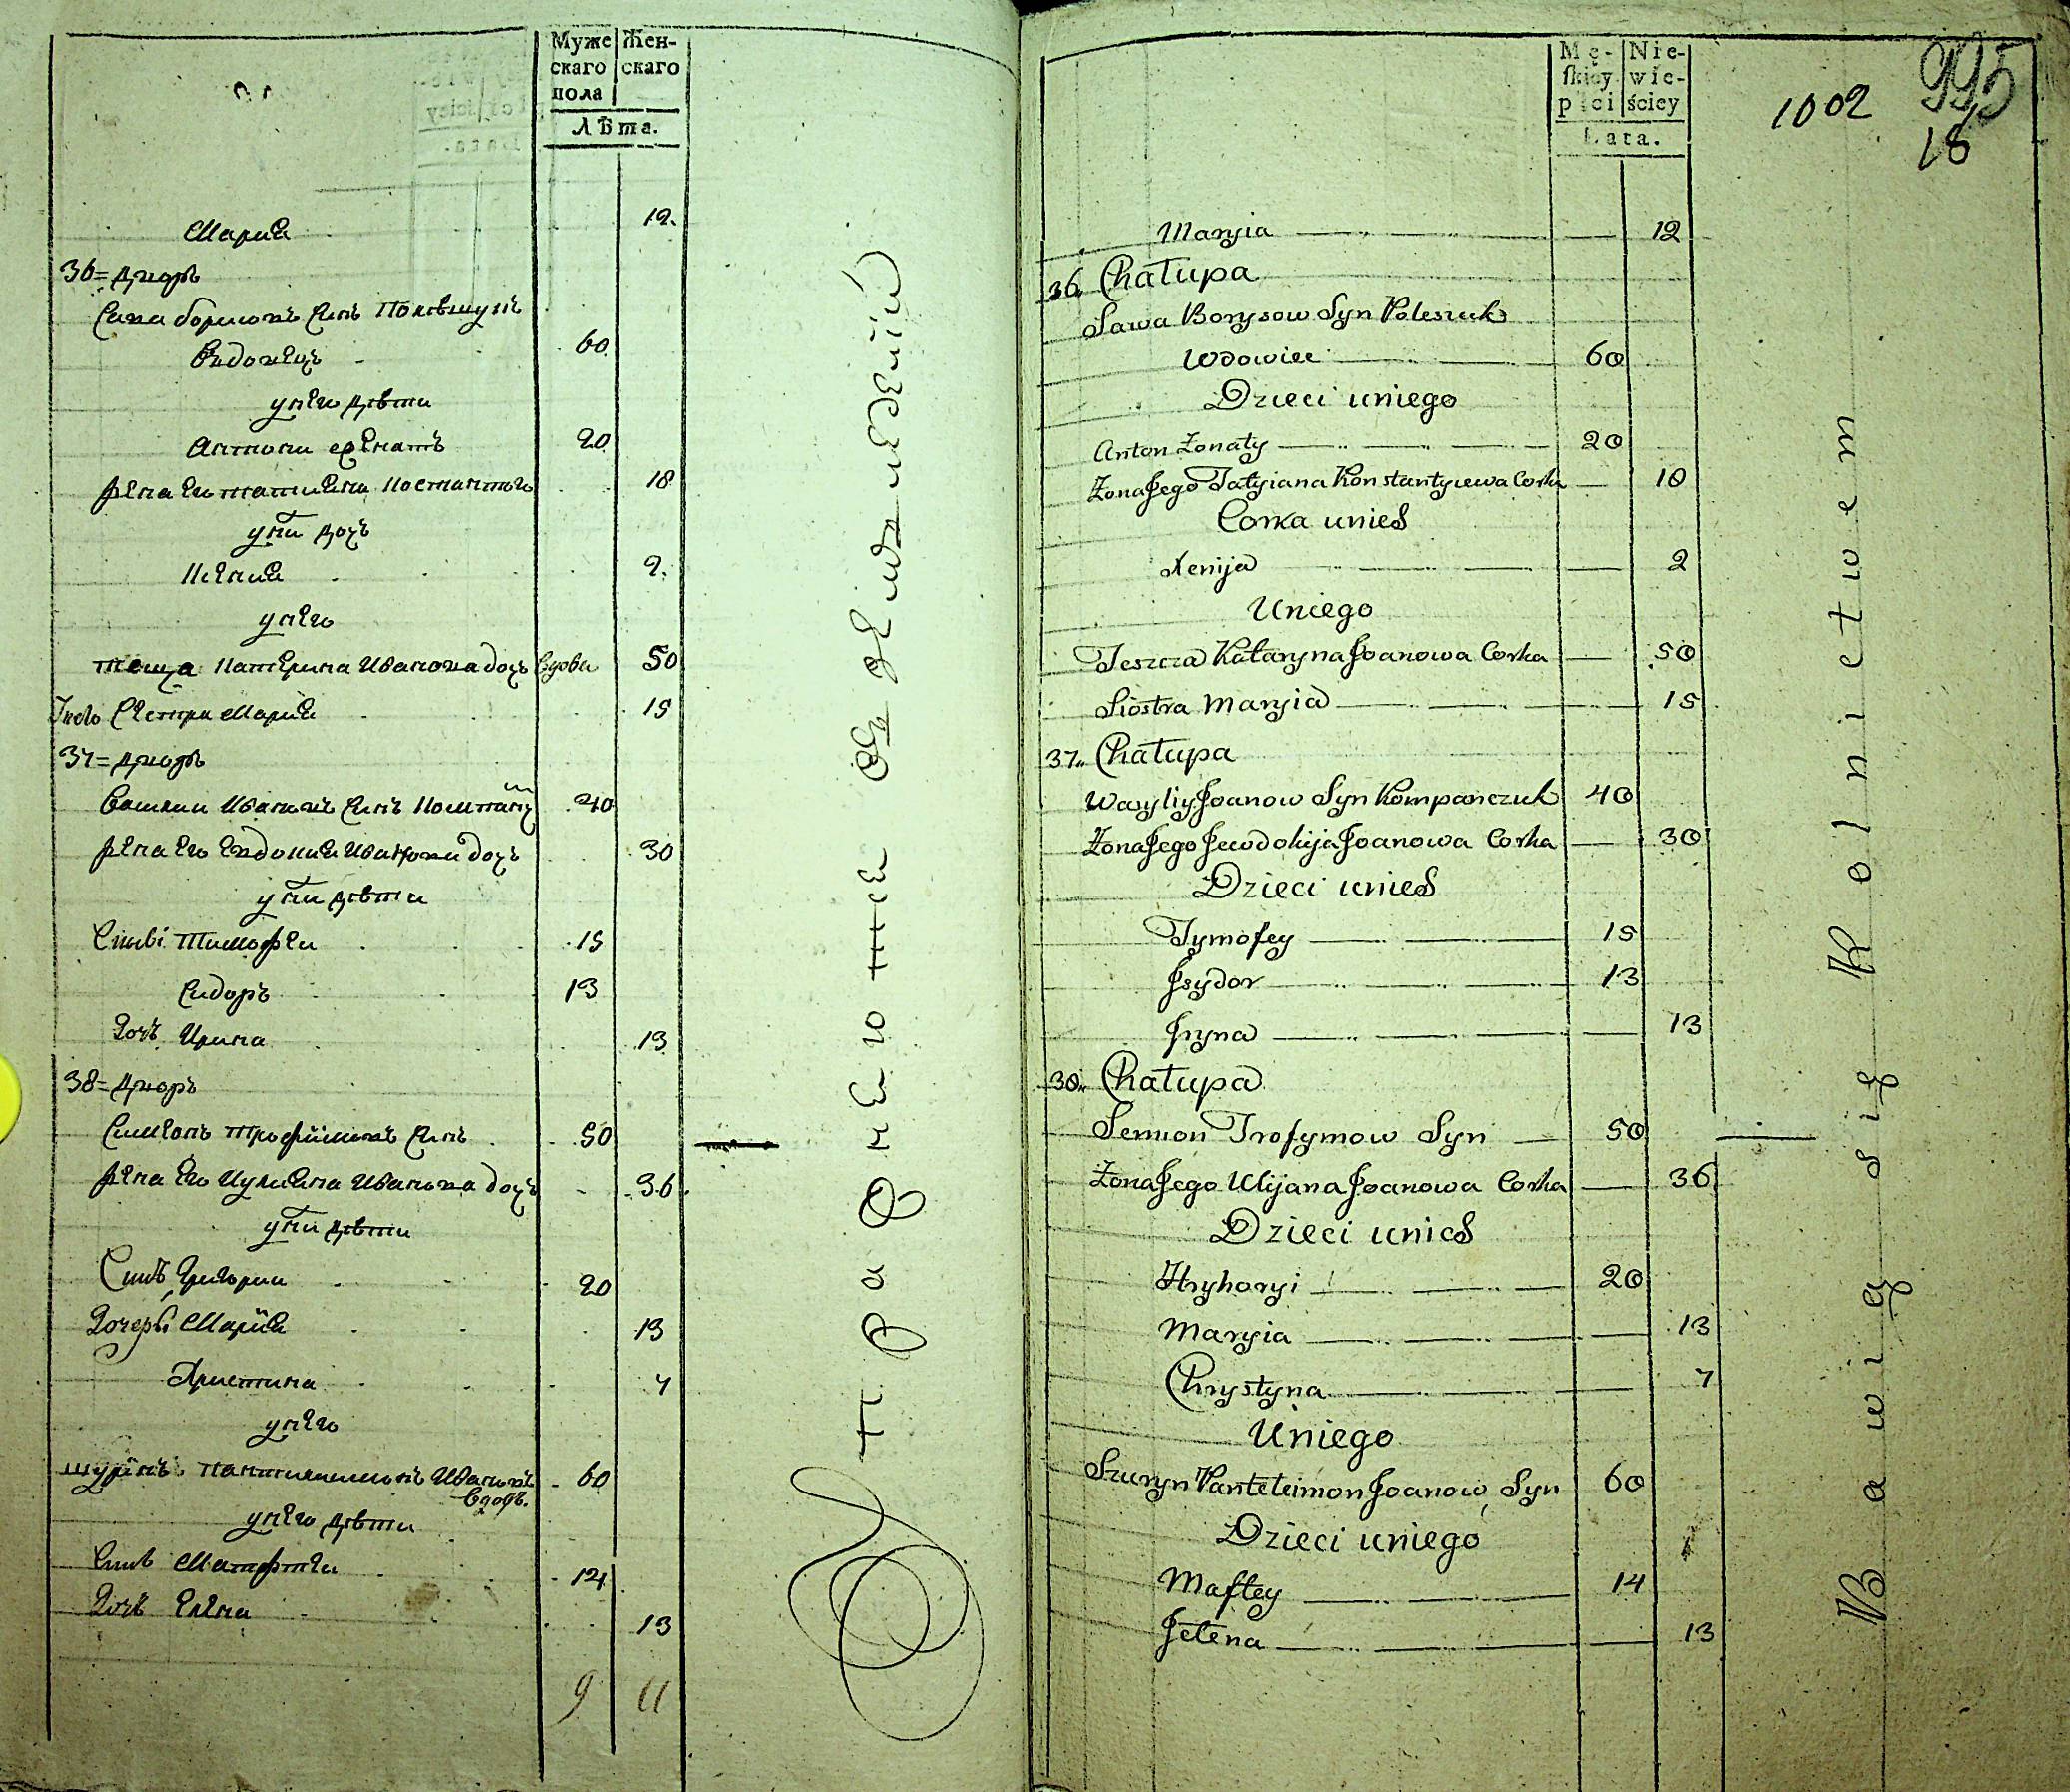 Муже
скаго
пола
Жен-
скаго
Лѣта.
Мариа 12.
36= двор
Сава борисовъ синъ Полѣшукъ
Вдовецъ 60
у него дѣти
Антони женатъ 20
жена его татиана 18
у ни доч
Ксениа 2.
у него
теща Катерина Иванова доч вдова 50
Сестра Мариа 15
37= двор
Василии Ивановъ синъ 40
жена его Евдокиа Иванова доч 30
у ни дѣти
Тимофеи 15
Сидоръ 13
Доч Ирина 13
38= Двор
Симеонъ трофимовъ синъ 50
жена его Иулиана Иванова доч 36
у ни дѣти
Синъ Григории 20
Дочеры Мариа 13
Христина 7
у него
шуринъ Пантилимонъ Ивановъ 60
вдовъ.
у него дѣти
Синъ Матфтеи 14
Доч Елена 13
9 11
упраженютсе земледелии
Mę-
skiey
płci
Nie-
wie-
ściey
Lata.
1002
995
18
Maryia 12
36. Chałupa
Sawa Borysow Syn Poleszuk
Wdowiec 60
Dzieci uniego
Anton Żonaty 20
Żona Jego Tatyiana Konstantyiewa Corka 18
Corka unieS
Xenija 2
Uniego
Teszcza Kataryna Joanowa Corka 50
Siostra Maryia 15
37. Chałupa
Wasyliy Joanow Syn Kompanczuk 40
Żona Jego Jewdokija Joanowa Corka 30
Dzieci unieS
Tymofey 15
Jsydor 13
Jryna 13
38. Chałupa
Semion Trofymow Syn 50
Żona Jego Ulijana Joanowa Corka 36
Dzieci unieS
Hryhoryi 20
Maryia 13
Chrystyna 7
Uniego
Szuryn Panteleimon Joanow Syn 60
Dzieci uniego
Maftey 14
Jelena 13
Bawią się Rolnictwem